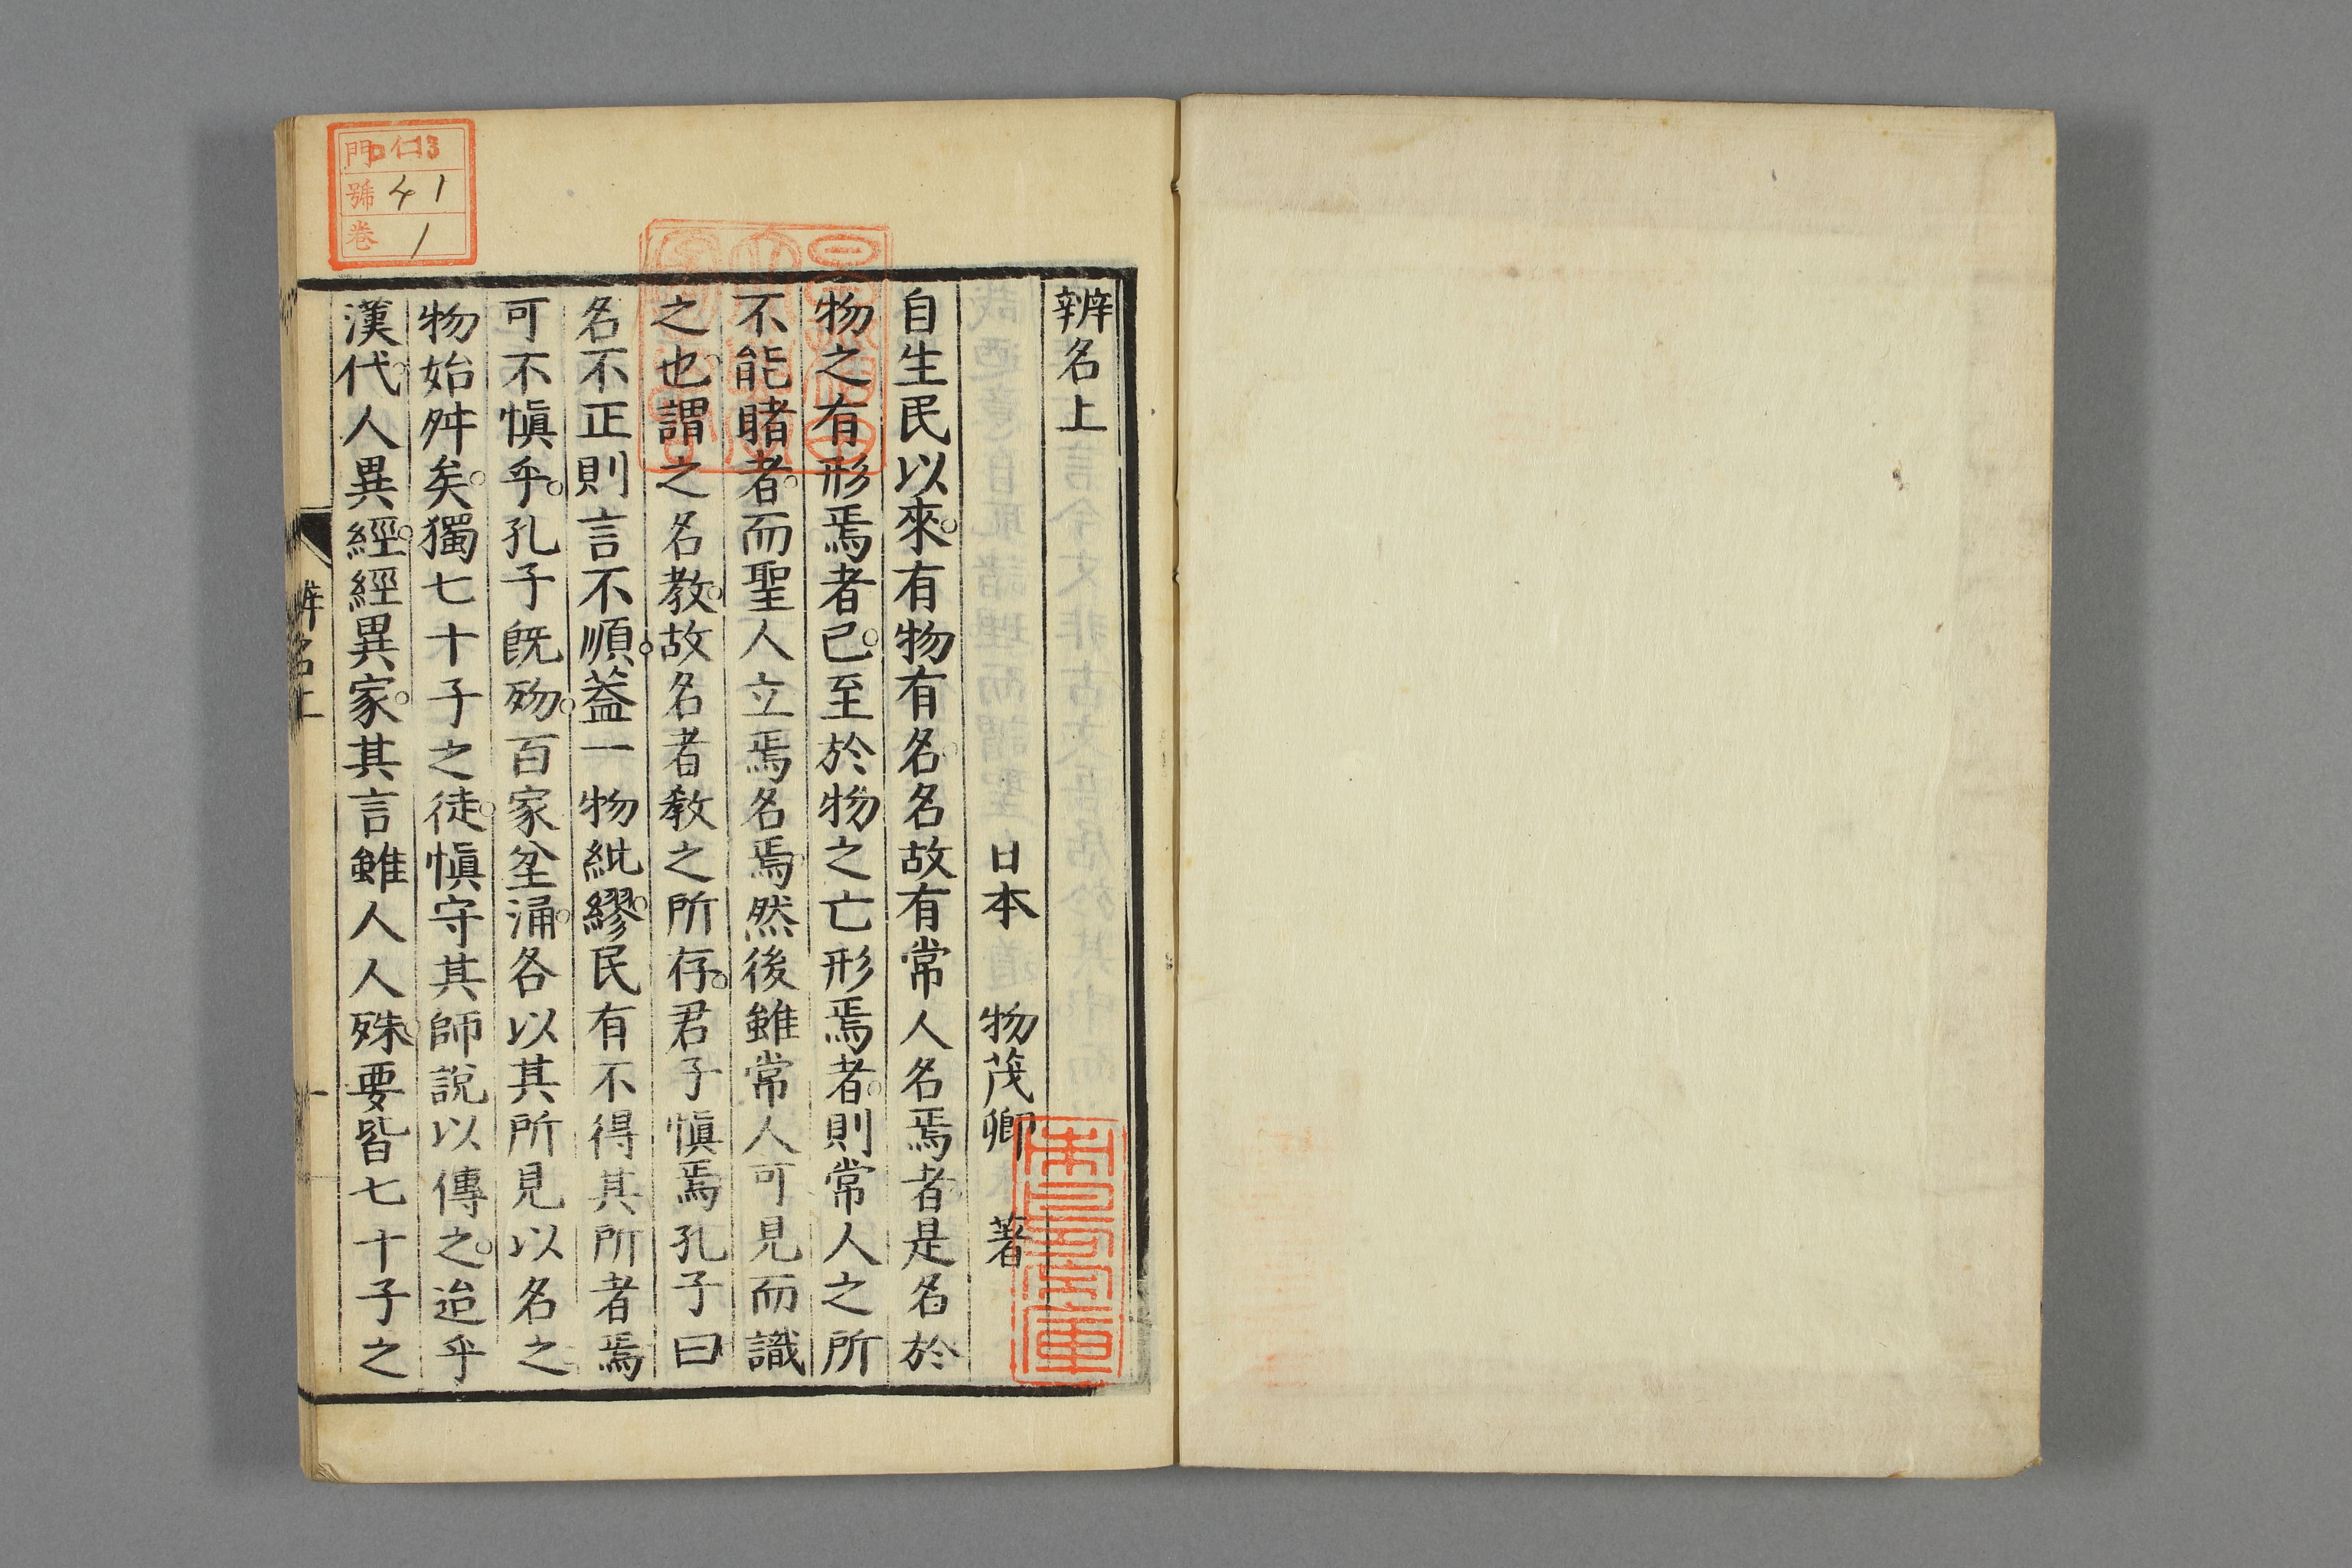 辨名上
日本 物茂卿 著
自生民以來。有物有名。名故有常人名焉者。是名於
物之有形焉者已。至於物之亡形焉者。則常人之所
不能睹者。而聖人立焉名焉。然後雖常人可見而識
之也。謂之名教。故名者教之所存。君子慎焉。孔子曰
名不正則言不順。蓋一物紕繆。民有不得其所者焉
可不慎乎。孔子既歿。百家坌涌。各以其所見以名之
物始舛矣。獨七十子之徒。慎守其師說以傳之。迨乎
漢代。人異經。經異家。其言雖人人殊。要皆七十子之
辨名上
一
門 仁13
號 41
卷 1